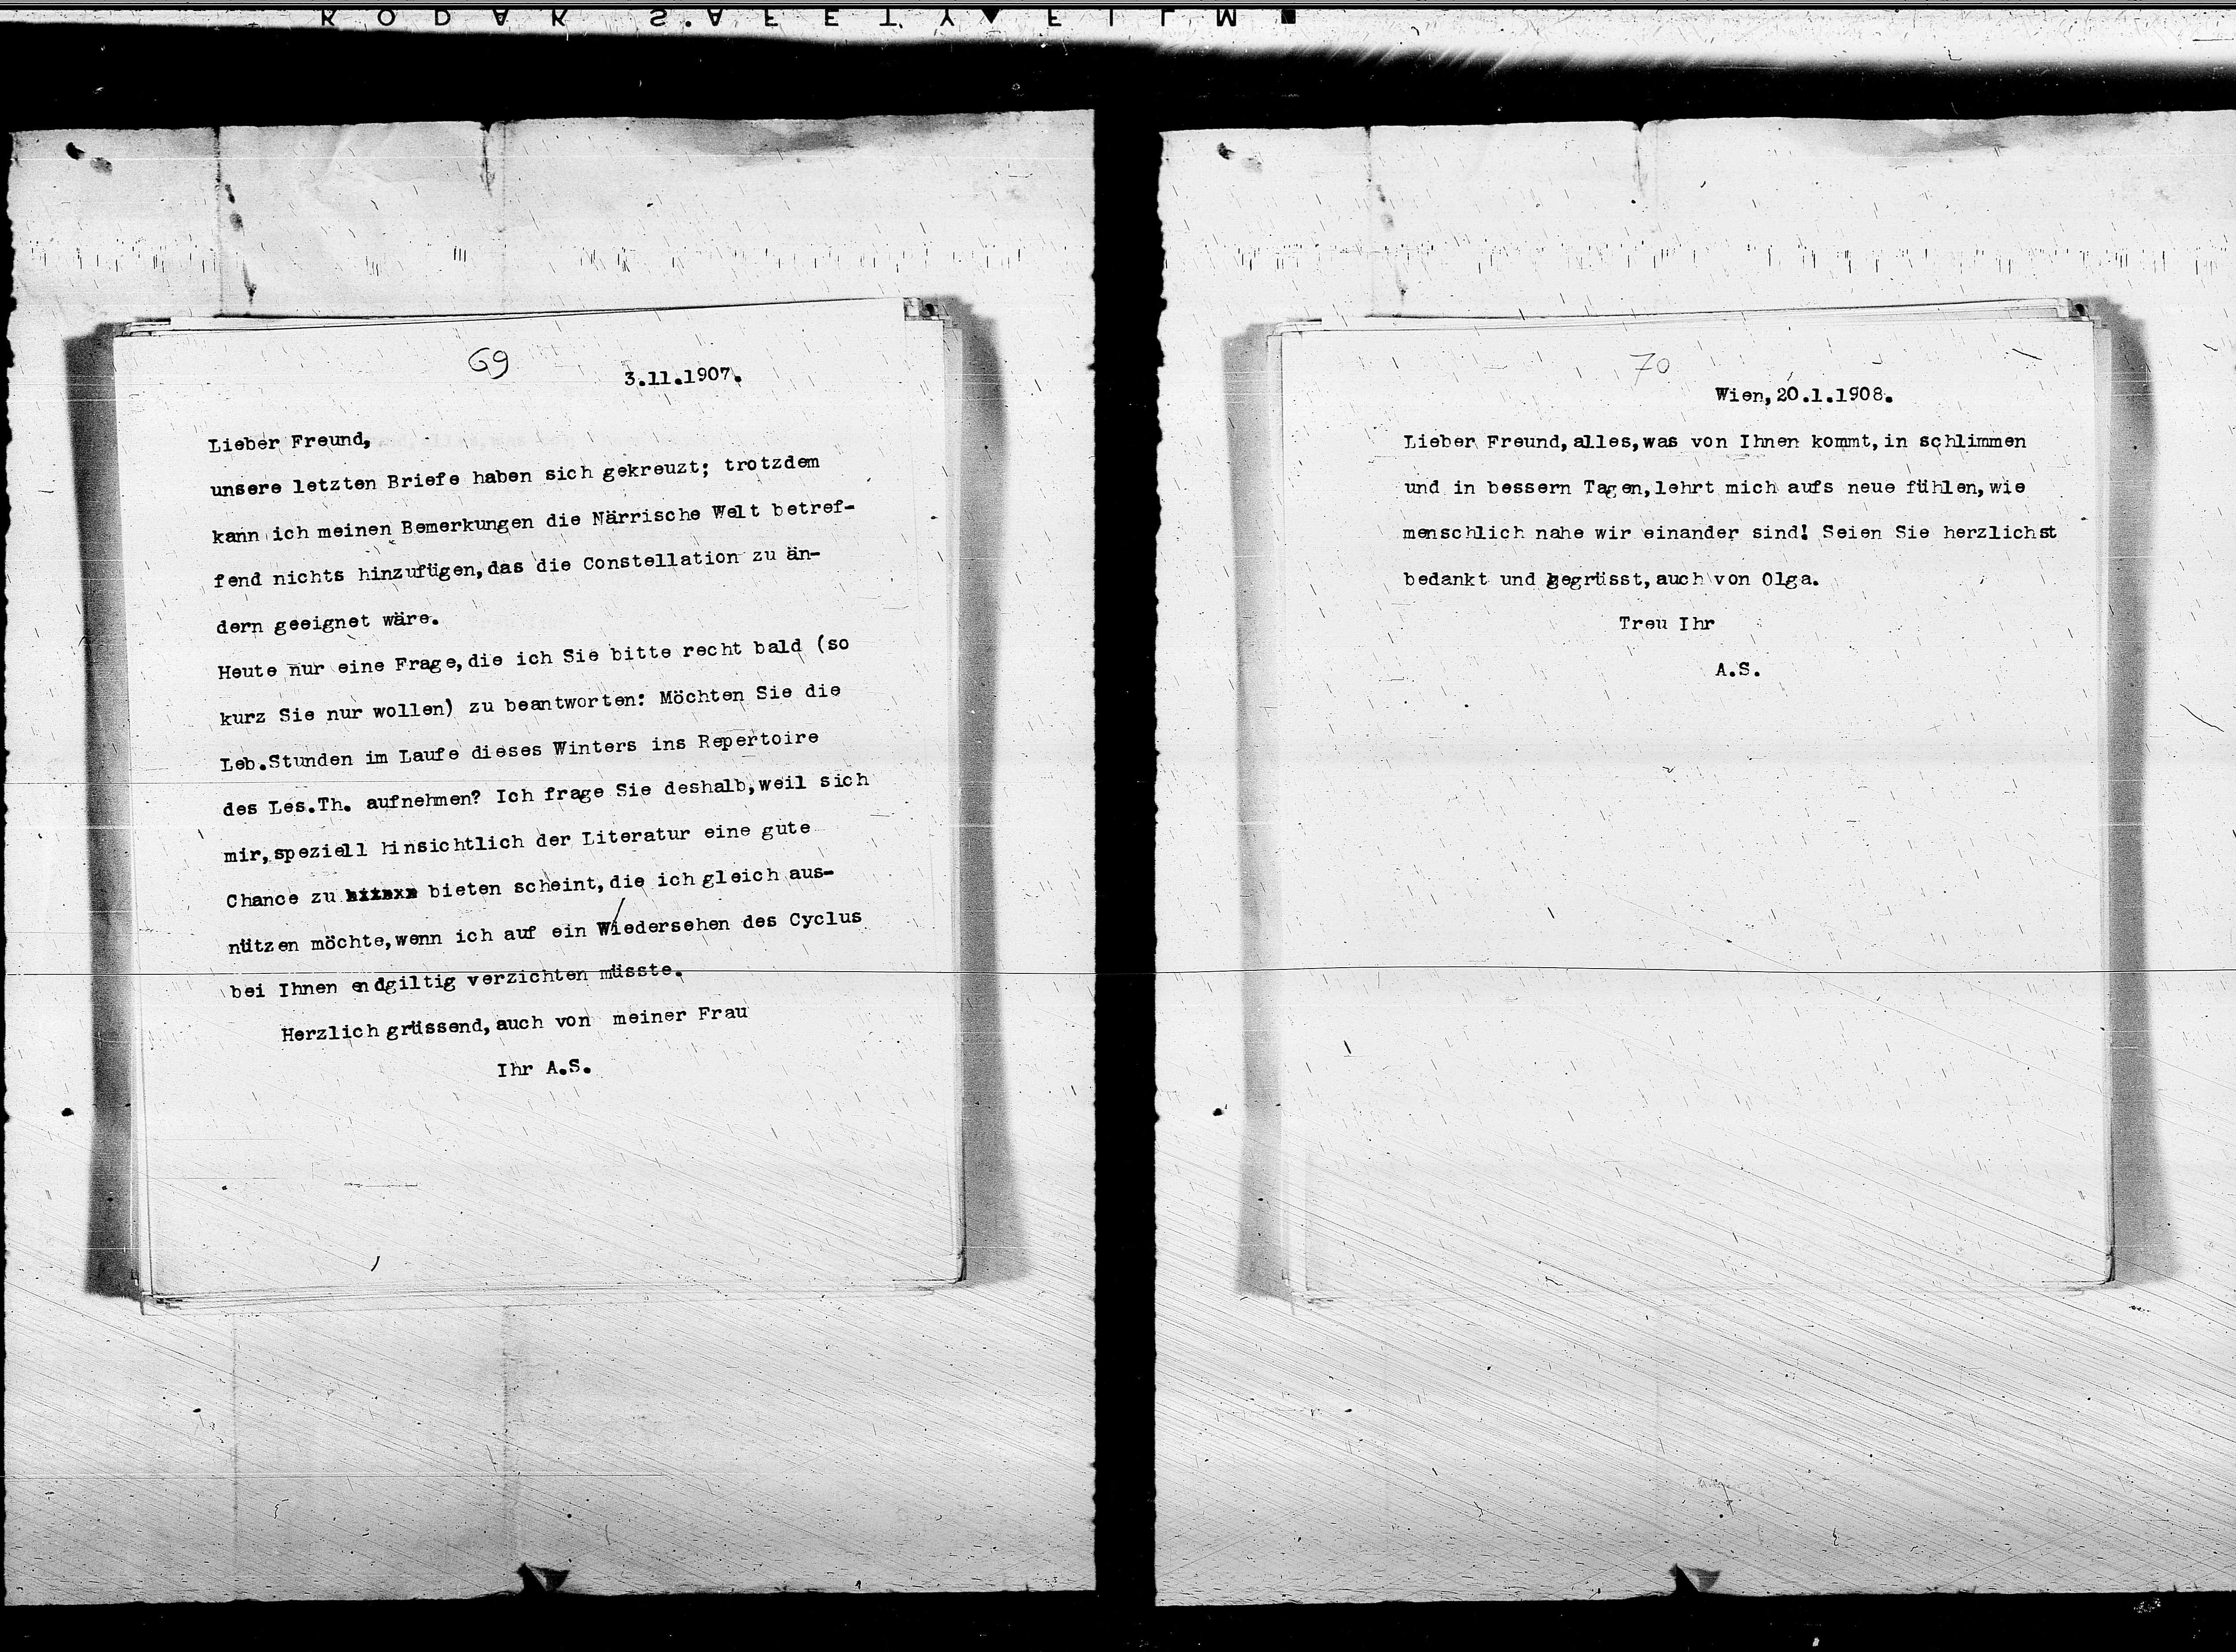 KODAK SAFETY FILM
69
3.11.1907.
Lieber Freund,
unsere letzten Briefe haben sich gekreuzt; trotzdem
kann ich meinen Bemerkungen die Närrische Welt betref-
fend nichts hinzufügen,das die Constellation zu än-
dern geeignet wäre.
Heute nur eine Frage,die ich Sie bitte recht bald (so
kurz Sie nur wollen) zu beantworten: Möchten Sie die
Leb.Stunden im Laufe dieses Winters ins Repertoire
des Les.Th. aufnehmen? Ich frage Sie deshalb,weil sich
mir,speziell hinsichtlich der Literatur eine gute
Chance zu bieten scheint,die ich gleich aus-
nützen möchte,wenn ich auf ein Wiedersehen des Cyclus
bei Ihnen endgiltig verzichten müsste.
Herzlich grüssend,auch von meiner Frau
Ihr A.S.
70
Wien,20.1.1908.
Lieber Freund,alles,was von Ihnen kommt,in schlimmen
und in bessern Tagen,lehrt mich aufs neue fühlen,wie
menschlich nahe wir einander sind! Seien Sie herzlichst
bedankt und gegrüsst,auch von Olga.
Treu Ihr
A.S.